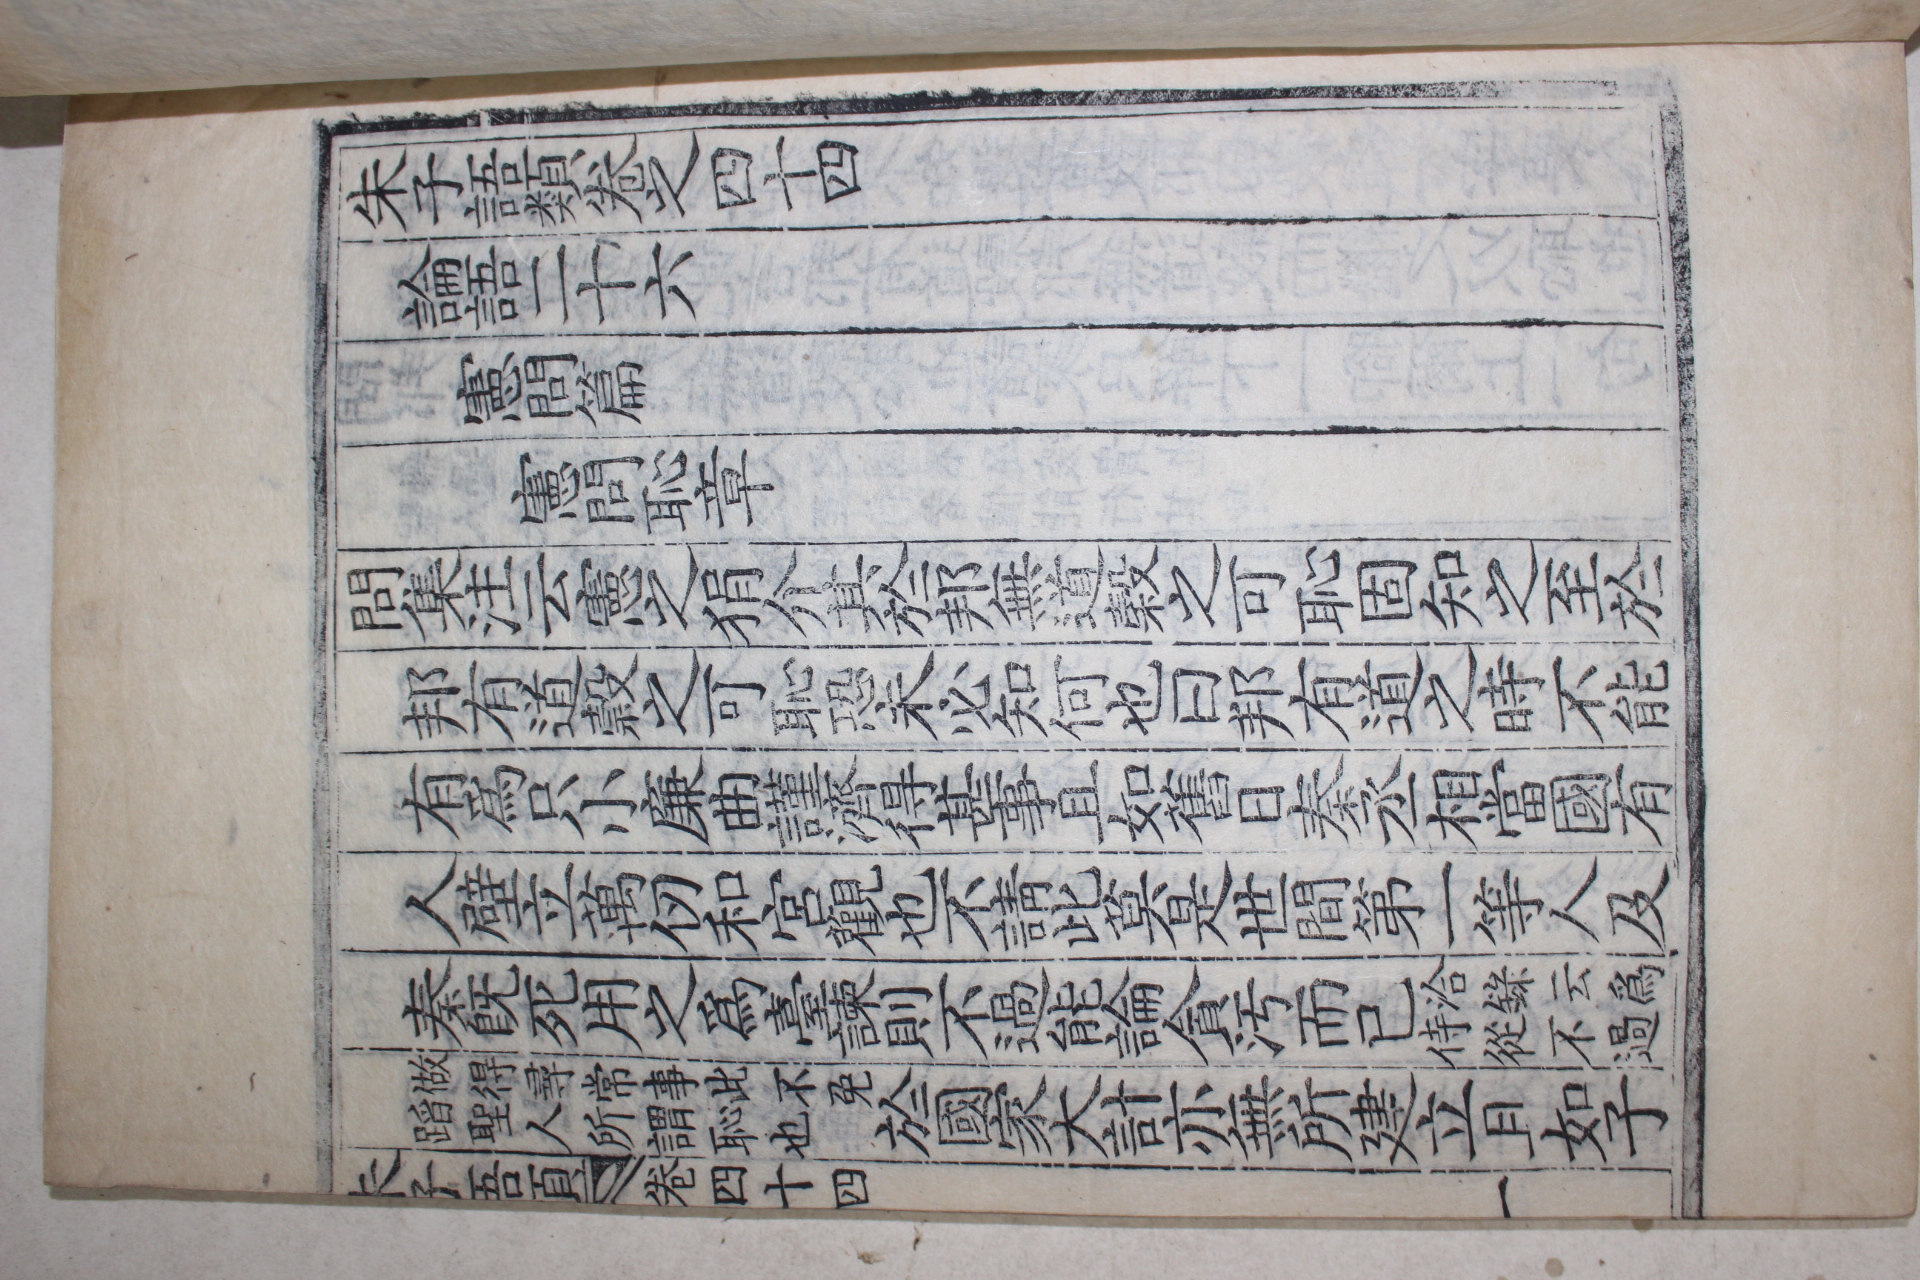 朱子語類卷之四十四
論語二十六
憲問篇
憲問恥章
問集注云憲之狷介其於邦無道穀之可恥固知之至於
邦有道穀之可恥恐未必知何也曰邦有道之時不能
有爲只小廉曲謹濟得甚事且如舊日秦丞相當國有
人壁立萬仞和宮觀也不請此莫是世間第一等人及
秦旣死用之爲臺諫則不過能論貪污而已洽錄云爲侍從不過
做得尋常事此不免蹈聖人所謂恥也於國家大計亦無所建立且如子
朱子語類 卷四十四 一